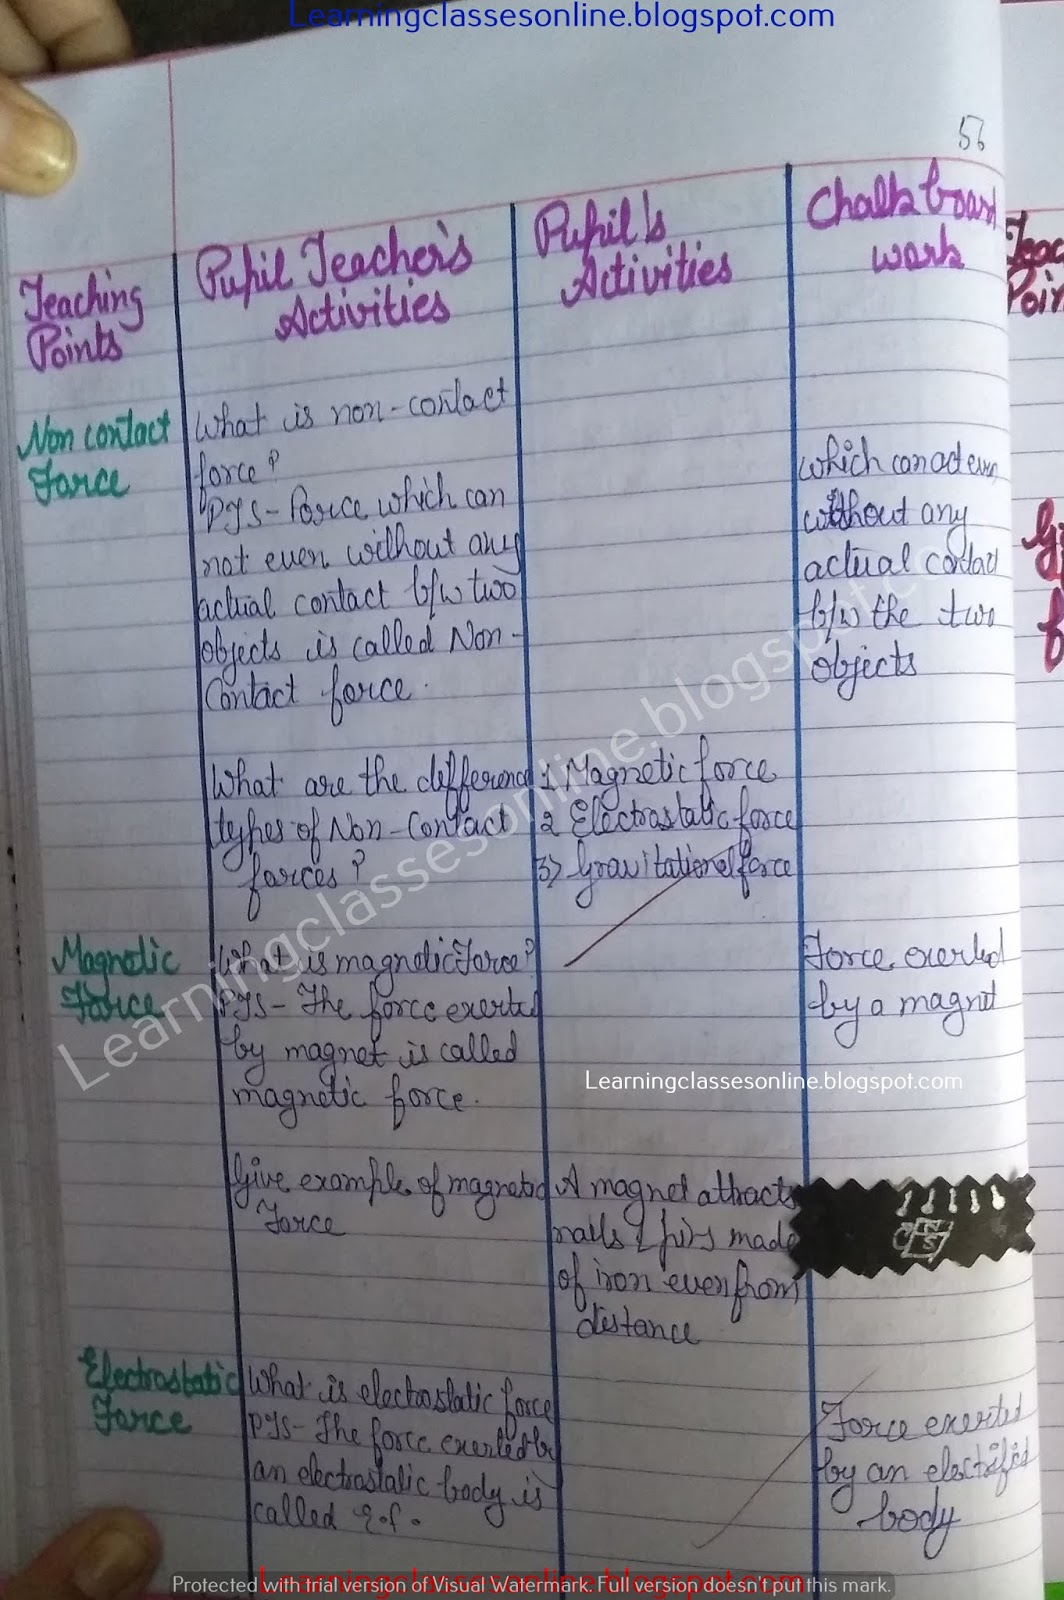 Learningclassesonline.blogspot.com
56
Teaching
Points
Pupil Teacher's
Activities
Pupil's
Activities
Chalk board
work
Non contact
Force
What is non-contact
force?
PTS- Force which can
not even without any
actual contact b/w two
objects is called Non-
Contact force.
which can act even
without any
actual contact
b/w the two
objects
What are the difference
types of Non-Contact
forces?
1 Magnetic force
2 Electrostatic force
3) Gravitational force
Magnetic
Force
What is magnetic Force?
PTS- The force exerted
by magnet is called
magnetic force.
Force exerted
by a magnet
Learningclassesonline.blogspot.com
Learningclassesonline.blogspot.com
Give example of magnetic
Force
A magnet attracts
nails & pins made
of iron even from
distance
N
S
Electrostatic
Force
What is electrostatic force
PTS- The force exerted by
an electrostatic body is
called E.f.
Force exerted
by an electrified
body
Learningclassesonline.blogspot.com
Protected with trial version of Visual Watermark. Full version doesn't put this mark.